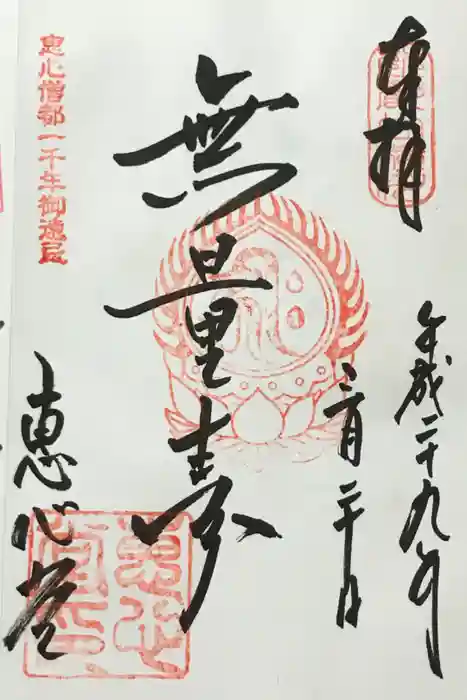 奉拝
平成二十九年
三月二十日
無量寿
恵心僧都一千年御遠忌
恵心堂